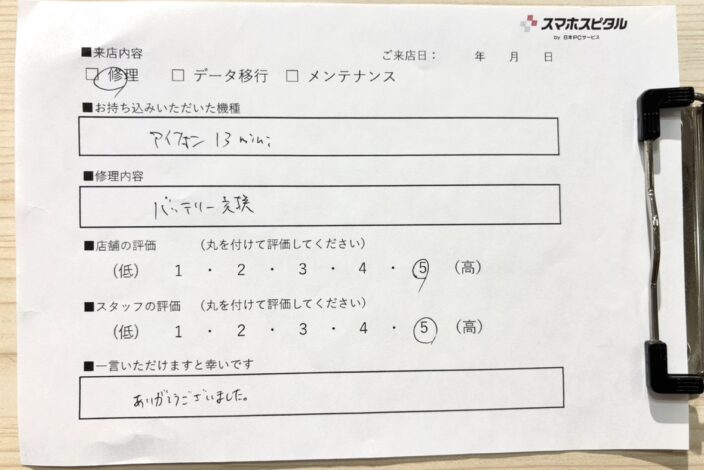 スマホスピタル
by 日本PCサービス
■来店内容
ご来店日： 年 月 日
□ 修理 □ データ移行 □ メンテナンス
■お持ち込みいただいた機種
アイフォン 13 mini
■修理内容
バッテリー交換
■店舗の評価 （丸を付けて評価してください）
（低） 1 ・ 2 ・ 3 ・ 4 ・ 5 （高）
■スタッフの評価 （丸を付けて評価してください）
（低） 1 ・ 2 ・ 3 ・ 4 ・ 5 （高）
■一言いただけますと幸いです
ありがとうございました。